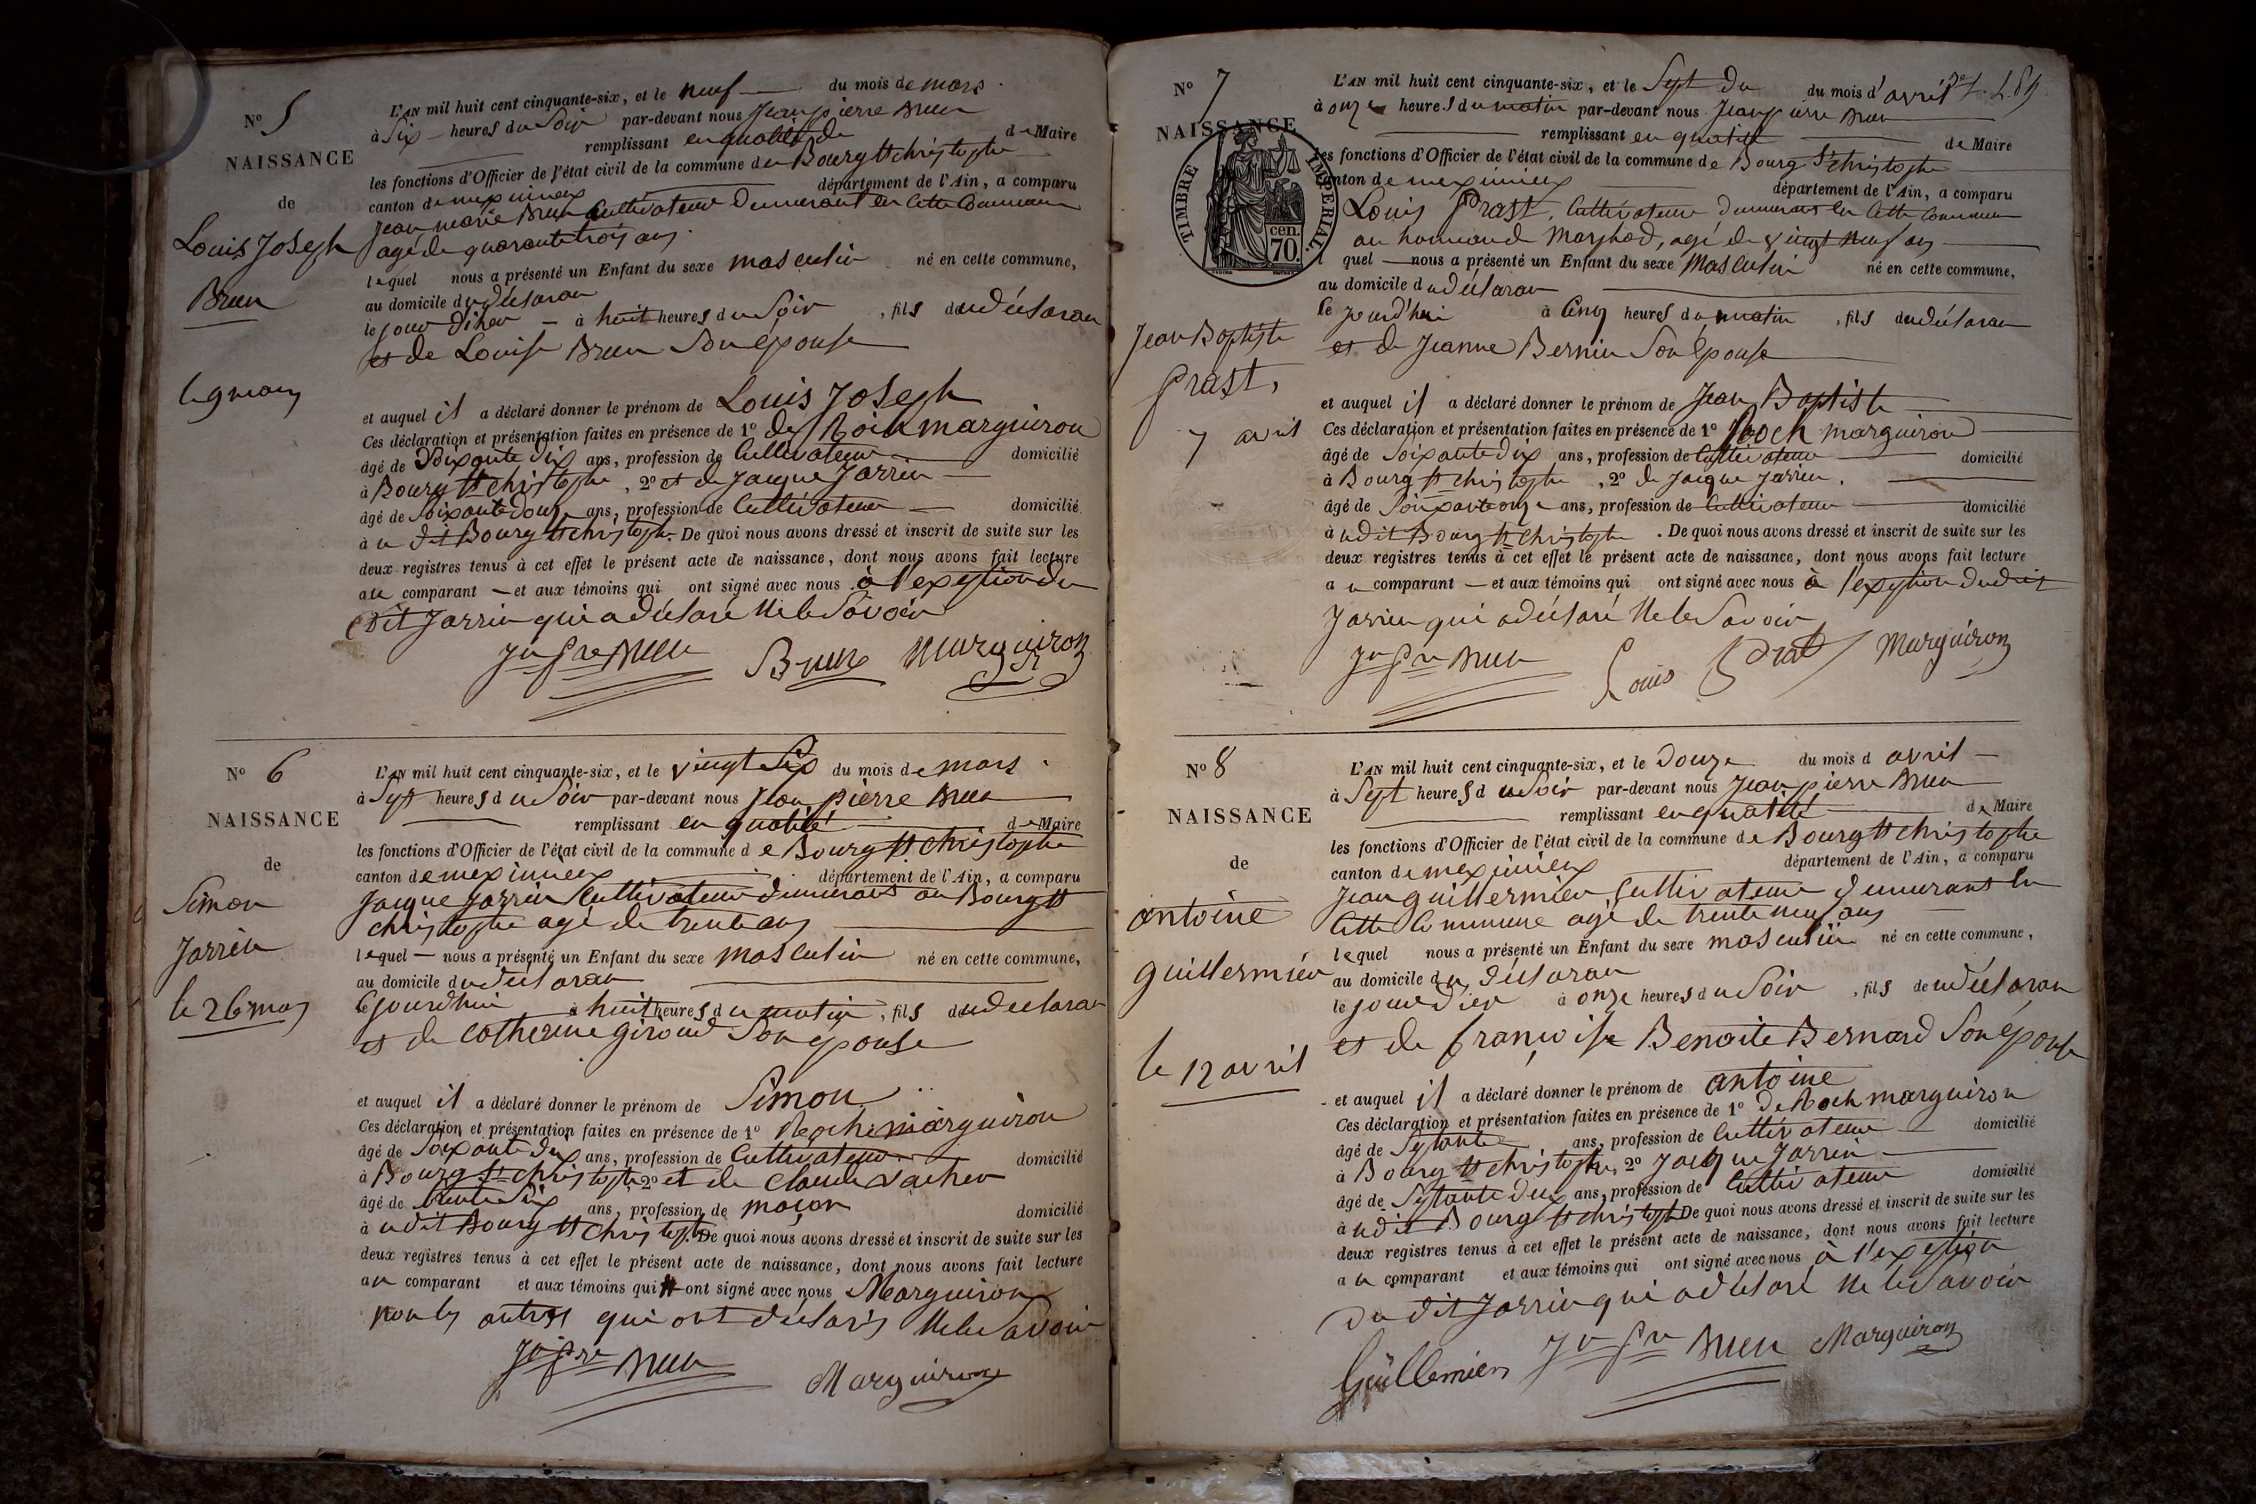 N° 5
NAISSANCE
de
Louis Joseph
Brun
le 9 mars
L'AN mil huit cent cinquante-six, et le neuf du mois de mars
à Six heures du Soir par-devant nous Jean pierre Brun
remplissant en qualité de de Maire
les fonctions d'Officier de l'état civil de la commune de Bourg St christophe
canton de meximieux département de l'Ain, a comparu
Jean marie Brun Cultivateur demeurant en Cette Commune
agé de quarante trois ans
lequel nous a présenté un Enfant du sexe masculin né en cette commune,
au domicile du déclaran
le jour d'hier à huit heures du Soir, fils du déclaran
et de Louise Brun Son épouse
et auquel il a déclaré donner le prénom de Louis Joseph
Ces déclaration et présentation faites en présence de 1° de Rock marguiron
âgé de Soixante dix ans, profession de Cultivateur domicilié
à Bourg St christophe, 2° et de Jacque Jarrin
âgé de Soixante douze ans, profession de Cultivateur domicilié
à u dit Bourg St christophe. De quoi nous avons dressé et inscrit de suite sur les
deux registres tenus à cet effet le présent acte de naissance, dont nous avons fait lecture
au comparant et aux témoins qui ont signé avec nous à l'exeption du
dit Jarrin qui a déclaré ne le Savoir
Jn pre Brun Brun Marguiron
N° 6
NAISSANCE
de
Simon
Jarrin
le 26 mars
L'AN mil huit cent cinquante-six, et le vingt Six du mois de mars
à Sept heures du Soir par-devant nous Jean pierre Brun
remplissant en qualité de Maire
les fonctions d'Officier de l'état civil de la commune de Bourg St christophe
canton de meximieux département de l'Ain, a comparu
Jacque Jarrin Cultivateur demeurant au Bourg St
christophe agé de trente ans
lequel nous a présenté un Enfant du sexe masculin né en cette commune,
au domicile du déclaran
le jourdhui à huit heures du matin, fils du déclaran
et de Catherine giroud Son épouse
et auquel il a déclaré donner le prénom de Simon
Ces déclaration et présentation faites en présence de 1° Roch marguiron
âgé de Soixante dix ans, profession de Cultivateur domicilié
à Bourg St christophe 2° et de Claude vacher
âgé de trente Six ans, profession de maçon domicilié
à u dit Bourg St christophe De quoi nous avons dressé et inscrit de suite sur les
deux registres tenus à cet effet le présent acte de naissance, dont nous avons fait lecture
au comparant et aux témoins qui ont signé avec nous Marguiron
non les autres qui ont déclarés Ne le Savoir
Jn pre Brun Marguiron
N° 7
NAISSANCE
TIMBRE IMPERIAL
70 cen.
Jean Baptiste
Prast,
7 avril
L'AN mil huit cent cinquante-six, et le Sept du du mois d'avril
à onze heures du matin par-devant nous Jean pierre Brun
remplissant en qualité de Maire
les fonctions d'Officier de l'état civil de la commune de Bourg St christophe
canton de meximieux département de l'Ain, a comparu
Louis Prast, Cultivateur demeurant en Cette Commune
au hameau de Marfhod, agé de vingt neuf ans
quel nous a présenté un Enfant du sexe Masculin né en cette commune,
au domicile du déclaran
le jourd'hui à Cinq heures du matin, fils du déclaran
et de Jeanne Bernin Son épouse
et auquel il a déclaré donner le prénom de Jean Baptiste
Ces déclaration et présentation faites en présence de 1° Roch marguiron
âgé de Soixante dix ans, profession de Cultivateur domicilié
à Bourg St christophe, 2° de Jacque Jarrin.
âgé de Soixante onze ans, profession de Cultivateur domicilié
à u dit Bourg St christophe. De quoi nous avons dressé et inscrit de suite sur les
deux registres tenus à cet effet le présent acte de naissance, dont nous avons fait lecture
au comparant et aux témoins qui ont signé avec nous à l'exeption du dit
Jarrin qui a déclaré Ne le Savoir
Jn pre Brun Louis Prast Marguiron
N° 8
NAISSANCE
de
antoine
guillermier
le 12 avril
L'AN mil huit cent cinquante-six, et le Douze du mois d avril
à Sept heures du Soir par-devant nous Jean pierre Brun
remplissant en qualité de Maire
les fonctions d'Officier de l'état civil de la commune de Bourg St christophe
canton de meximieux département de l'Ain, a comparu
Jean guillermier Cultivateur demeurant en
Cette Commune agé de trente neuf ans
lequel nous a présenté un Enfant du sexe masculin né en cette commune,
au domicile du déclaran
le jour d'ier à onze heures du Soir, fils de du déclaran
et de françoise Benoite Bernard Son épouse
et auquel il a déclaré donner le prénom de antoine
Ces déclaration et présentation faites en présence de 1° De Roch marguiron
âgé de Septante ans, profession de Cultivateur domicilié
à Bourg St christophe, 2° Jacque Jarrin
âgé de Septante deux ans, profession de Cultivateur domicilié
à u dit Bourg St christophe De quoi nous avons dressé et inscrit de suite sur les
deux registres tenus à cet effet le présent acte de naissance, dont nous avons fait lecture
au comparant et aux témoins qui ont signé avec nous à l'exeption
du dit Jarrin qui a déclaré Ne le Savoir
Guillermier Jn pre Brun Marguiron